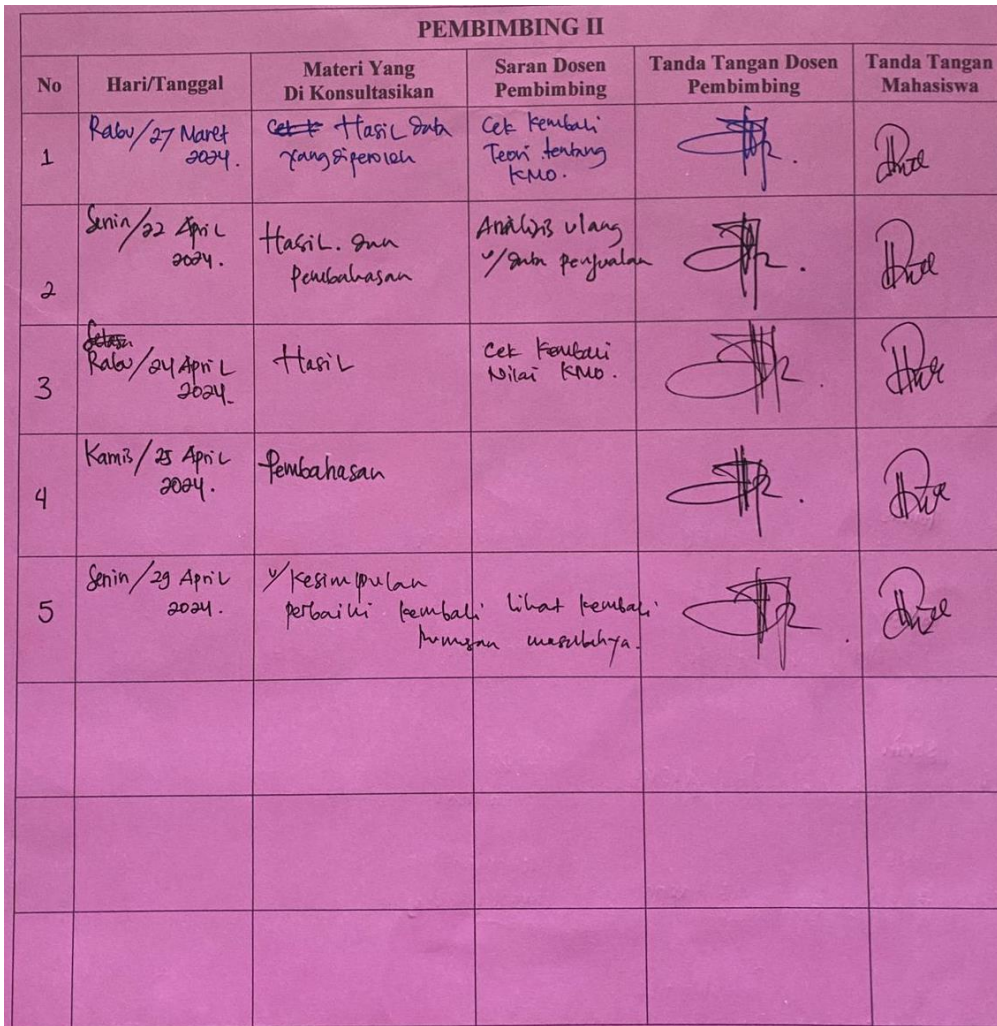 PEMBIMBING II
No
Hari/Tanggal
Materi Yang
Di Konsultasikan
Saran Dosen
Pembimbing
Tanda Tangan Dosen
Pembimbing
Tanda Tangan
Mahasiswa
1
Rabu/27 Maret
2024.
Hasil data
yang diperoleh
Cek kembali
Teori tentang
KMO.
2
Senin/22 April
2024.
Hasil. dan
Pembahasan
Analisis ulang
u/ data penjualan
3
Rabu/24 April
2024.
Hasil
Cek kembali
Nilai KMO.
4
Kamis/25 April
2024.
Pembahasan
5
Senin/29 April
2024.
u/ Kesimpulan
perbaiki kembali lihat kembali
rumusan masalahnya.